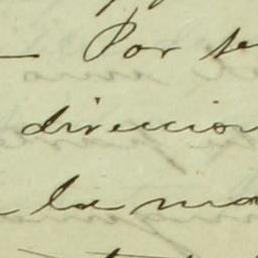 — Por te
direccion
la ma